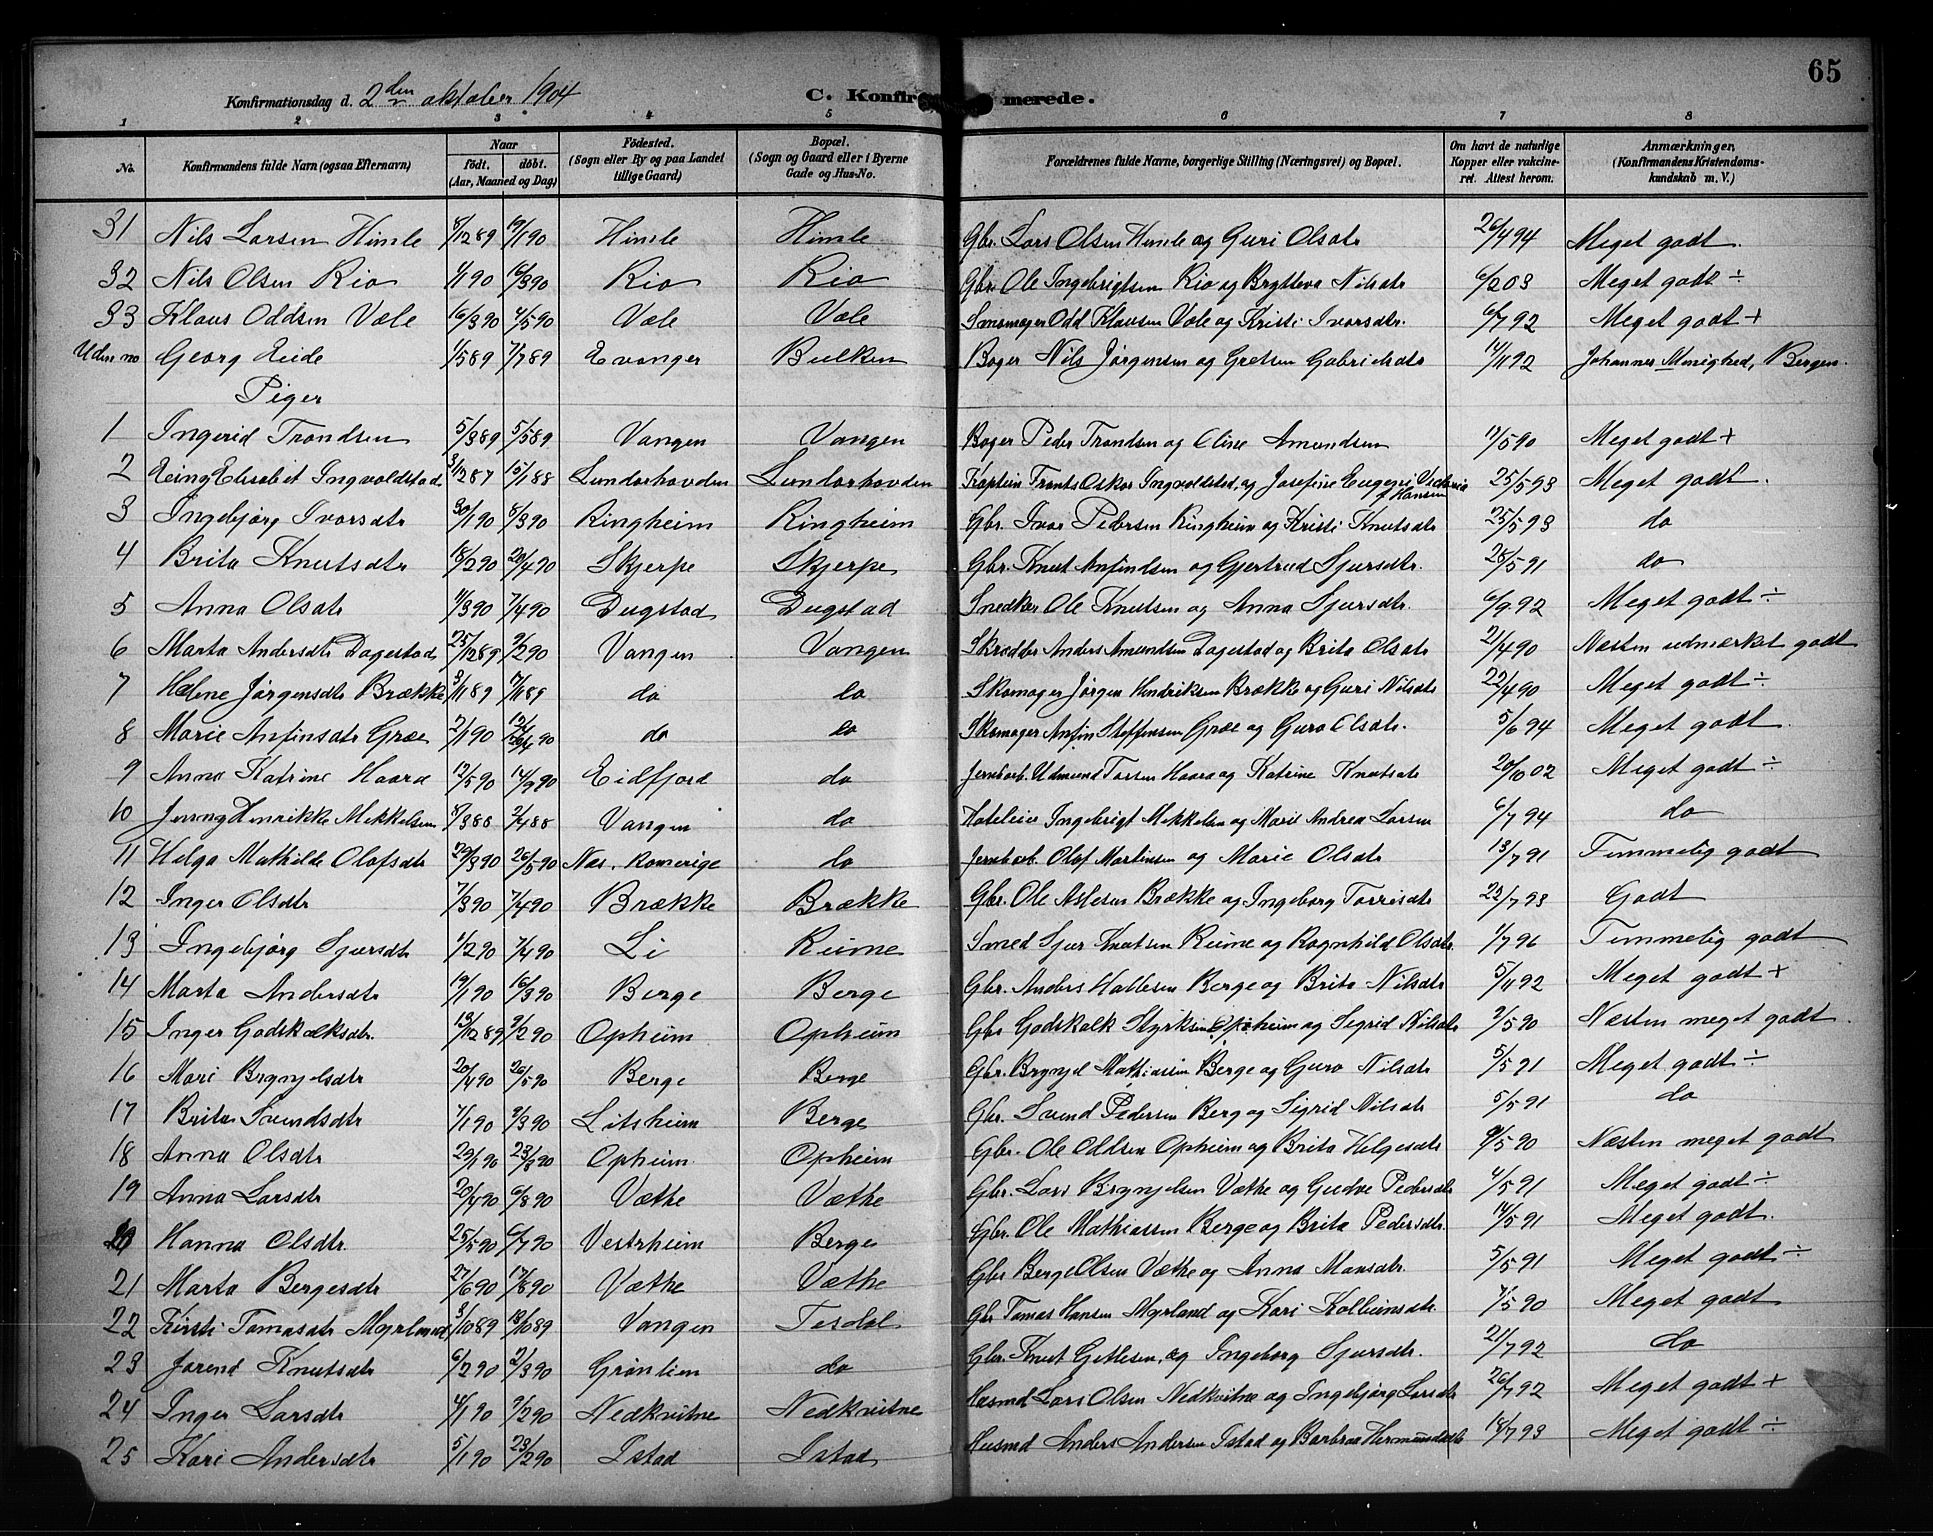 65
Konfirmationsdag d. 2den oktober 1904 C. Konfirmerede.
1 2 3 4 5 6 7 8
No. Konfirmandens fulde Navn (ogsaa Efternavn) Naar født. døbt. (Aar, Maaned og Dag) Fødested. (Sogn eller By og paa Landet tillige Gaard) Bopæl. (Sogn og Gaard eller i Byerne Gade og Hus-No. Forældrenes fulde Navne, borgerlige Stilling (Næringsvei) og Bopæl. Om havt de naturlige Kopper eller vakcineret. Attest herom. Anmærkninger, (Konfirmandens Kristendomskundskab m. V.)
31 Nils Larsen Himle 8/12 89 19/1 90 Himle Himle Gbr. Lars Olsen Himle og Guri Olsdtr 26/4 94 Meget godt.
32 Nils Olsen Rio 1/1 90 16/3 90 Rio Rio Gbr Ole Ingebrigtsen Rio og Brytteva Nilsdtr 6/2 03 Meget godt ÷
33 Klaus Oddsen Væle 16/3 90 4/5 90 Væle Væle Smomager Odd Klausen Væle og Kristi Ivarsdtr. 6/7 92 Meget godt +
Uden no Georg Eide 1/5 89 7/7 89 Evanger Bulken Bager Nils Jørgensen og Gretsen Gabrielsdtr 14/11 92 Johannes Menighed, Bergen.
Piger
1 Ingerid Trondsen 5/3 89 5/5 89 Vangen Vangen Bager Peder Trondsen og Oline Amundsen 11/5 90 Meget godt +
2 Elisabet Ingvoldstad 3/12 87 15/1 88 Lundarhovden Lundarhovden Kaptein Frants Oskar Ingvoldstad, og Josefine Eugeni Victoria f. Hansen 25/5 93 Meget godt.
3 Ingebjørg Ivarsdtr 30/1 90 8/3 90 Ringheim Ringheim Gbr. Ivar Pedersen Ringheim og Kristi Knutsdtr 25/5 93 do
4 Brita Knutsdtr 18/2 90 20/4 90 Skjerpe Skjerpe Gbr. Knut Anfindsen og Gjertrud Sjursdtr. 28/5 91 do
5 Anna Olsdtr 11/3 90 7/4 90 Dugstad Dugstad Snedker Ole Knutsen og Anna Sjursdtr. 6/9 92 Meget godt ÷
6 Marta Andersdtr Dagestad 25/12 89 9/2 90 Vangen Vangen Skrædder Anders Amundsen Dagestad og Brita Olsdtr 2/4 90 Næsten udmærket godt
7 Helene Jørgensdtr Brække 3/1 89 7/1 89 do do Skomager Jørgen Hendriksen Brække og Guri Nilsdtr 22/4 90 Meget godt ÷
8 Marie Anfinsdtr Græe 2/1 90 12/1 20/4 90 do do Skomager Anfin Steffensen Græe og Guro Olsdtr. 5/6 94 Meget godt
9 Anna Katrine Haara 12/5 90 14/9 90 Eidfjord do Jernbarb. Udmund Torsen Haara og Katrine Knutsdtr 20/10 02 Meget godt ÷
10 Jenny Henrikke Mikkelsen 8/3 88 2/4 88 Vangen do Hoteleier Ingebrigt Mikkelsen og Marie Andrea Larsen 6/7 94 do
11 Helga Mathilde Olofsdtr 29/3 90 26/5 90 Næs, Romerige do Jernbarb. Olof Martinsen og Marie Olsdtr 13/7 91 Temmelig godt
12 Inger Olsdtr 7/3 90 7/4 90 Brække Brække Gbr. Ole Aslesen Brække og Ingeborg Torrisdtr 23/7 93 Godt
13 Ingebjørg Sjursdtr 1/2 90 7/4 90 Li Rume Smed Sjur Knutsen Rume og Ragnhild Olsdtr. 1/7 96 Temmelig godt
14 Marta Andersdtr 19/1 90 16/3 90 Berge Berge Gbr. Anders Hallesen Berge og Brita Nilsdtr 5/11 92 Meget godt +
15 Inger Godskalksdtr. 13/12 89 9/2 90 Opheim Opheim Gbr Godskalk Styrksen Opheim og Sigrid Nilsdtr 9/5 90 Næsten meget godt.
16 Mari Brynjelsdtr 20/4 90 26/5 90 Berge Berge Gbr. Brynjel Mathiassen Berge og Guro Nilsdtr 5/5 91 Meget godt ÷
17 Brita Svendsdtr 7/1 90 9/3 90 Litsheim Berge Gbr. Svend Pedersen Berg og Sigrid Nilsdtr 5/5 91 do
18 Anna Olsdtr 29/1 90 23/3 90 Opheim Opheim Gbr. Ole Oddsen Opheim og Brita Helgesdtr 9/5 90 Næsten meget godt
19 Anna Larsdtr 20/4 90 6/8 90 Væthe Væthe Gbr. Lars Brynjelsen Væthe og Gudve Pedersdtr 4/5 91 Meget godt ÷
20 Hanna Olsdtr. 25/5 90 6/7 90 Vestrheim Berge Gbr. Ole Mathiassen Berge og Brita Pedersdtr. 14/5 91 Meget godt.
21 Marta Bergesdtr 27/6 90 17/8 90 Væthe Væthe Gbr Berge Olsen Væthe og Anna Monsdtr. 5/5 91 Meget godt ÷
22 Kirsti Tomasdtr Myrland 3/10 89 13/10 89 Vangen Tesdal Gbr Tomas Hansen Myrland og Kari Kolbeinsdtr 7/5 90 Meget godt
23 Jorend Knutsdtr 6/2 90 2/3 90 Grønlien do Gbr. Knut Getlesen, og Ingeborg Sjursdtr. 21/7 92 do
24 Inger Larsdtr 4/1 90 9/2 90 Nedkvitne Nedkvitne Husmd Lars Olsen Nedkvitne og Ingebjørg Larsdtr 26/7 92 Meget godt +
25 Kari Andersdtr 5/1 90 23/2 90 Istad Istad Husmd Anders Andersen Istad og Barbraa Hermundsdtr 18/7 93 Meget godt ÷